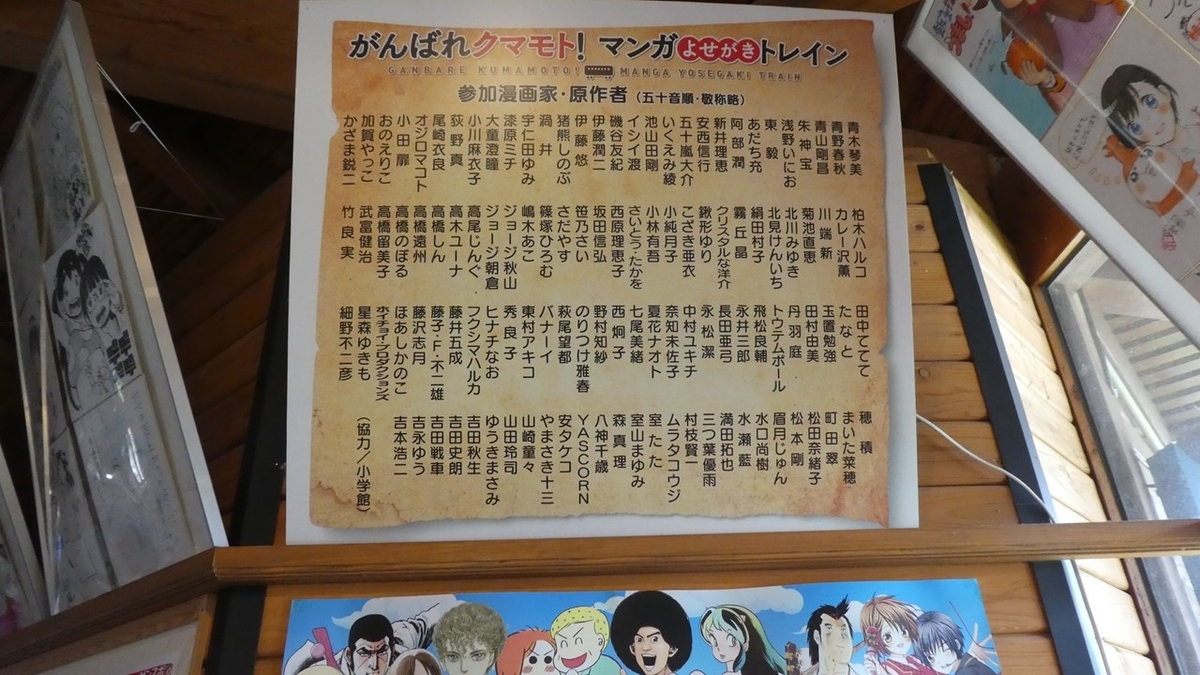 がんばれクマモト! マンガよせがきトレイン
GANBARE KUMAMOTO! MANGA YOSEGAKI TRAIN
参加漫画家・原作者(五十音順・敬称略)
青木琴美
青野春秋
青山剛昌
朱神宝
浅野いにお
東毅
あだち充
阿部潤
新井理恵
安西信行
五十嵐大介
いくえみ綾
池山田剛
イシイ渡
磯谷友紀
伊藤潤二
伊藤悠
猪熊しのぶ
渦井
宇仁田ゆみ
漆原ミチ
大童澄瞳
小川麻衣子
荻野真
尾崎衣良
オジロマコト
小田扉
おのえりこ
加賀やっこ
かざま鋭二
柏木ハルコ
カレー沢薫
川端新
菊池直恵
北川みゆき
北見けんいち
絹田村子
霧丘晶
クリスタルな洋介
鍬形ゆり
こざき亜衣
小純月子
小林有吾
さいとう・たかを
西原理恵子
坂田信弘
笹乃さい
さだやす
篠塚ひろむ
嶋木あこ
ジョージ秋山
ジョージ朝倉
高尾じんぐ
高木ユーナ
高橋しん
高橋遠州
高橋のぼる
高橋留美子
武富健治
竹良実
田中てててて
たなと
玉置勉強
田村由美
丹羽庭
トウテムポール
飛松良輔
永井三郎
長田亜弓
永松潔
中村ユキチ
奈知未佐子
夏花ナオト
七尾美緒
西炯子
野村知紗
のりつけ雅春
萩尾望都
バナーイ
東村アキコ
秀良子
ヒナチなお
フクシマハルカ
藤井五成
藤子・F・不二雄
藤沢志月
ほあしかのこ
ホイチョイ・プロダクションズ
星森ゆきも
細野不二彦
穂積
まいた菜穂
町田翠
松田奈緒子
松本剛
眉月じゅん
水口尚樹
水瀬藍
満田拓也
三つ葉優雨
村枝賢一
ムラタコウジ
室たた
室山まゆみ
森真理
八神千歳
YASCORN
安タケコ
やまさき十三
山崎童々
山田玲司
ゆうきまさみ
吉田秋生
吉田史朗
吉田戦車
吉永ゆう
吉本浩二
(協力/小学館)